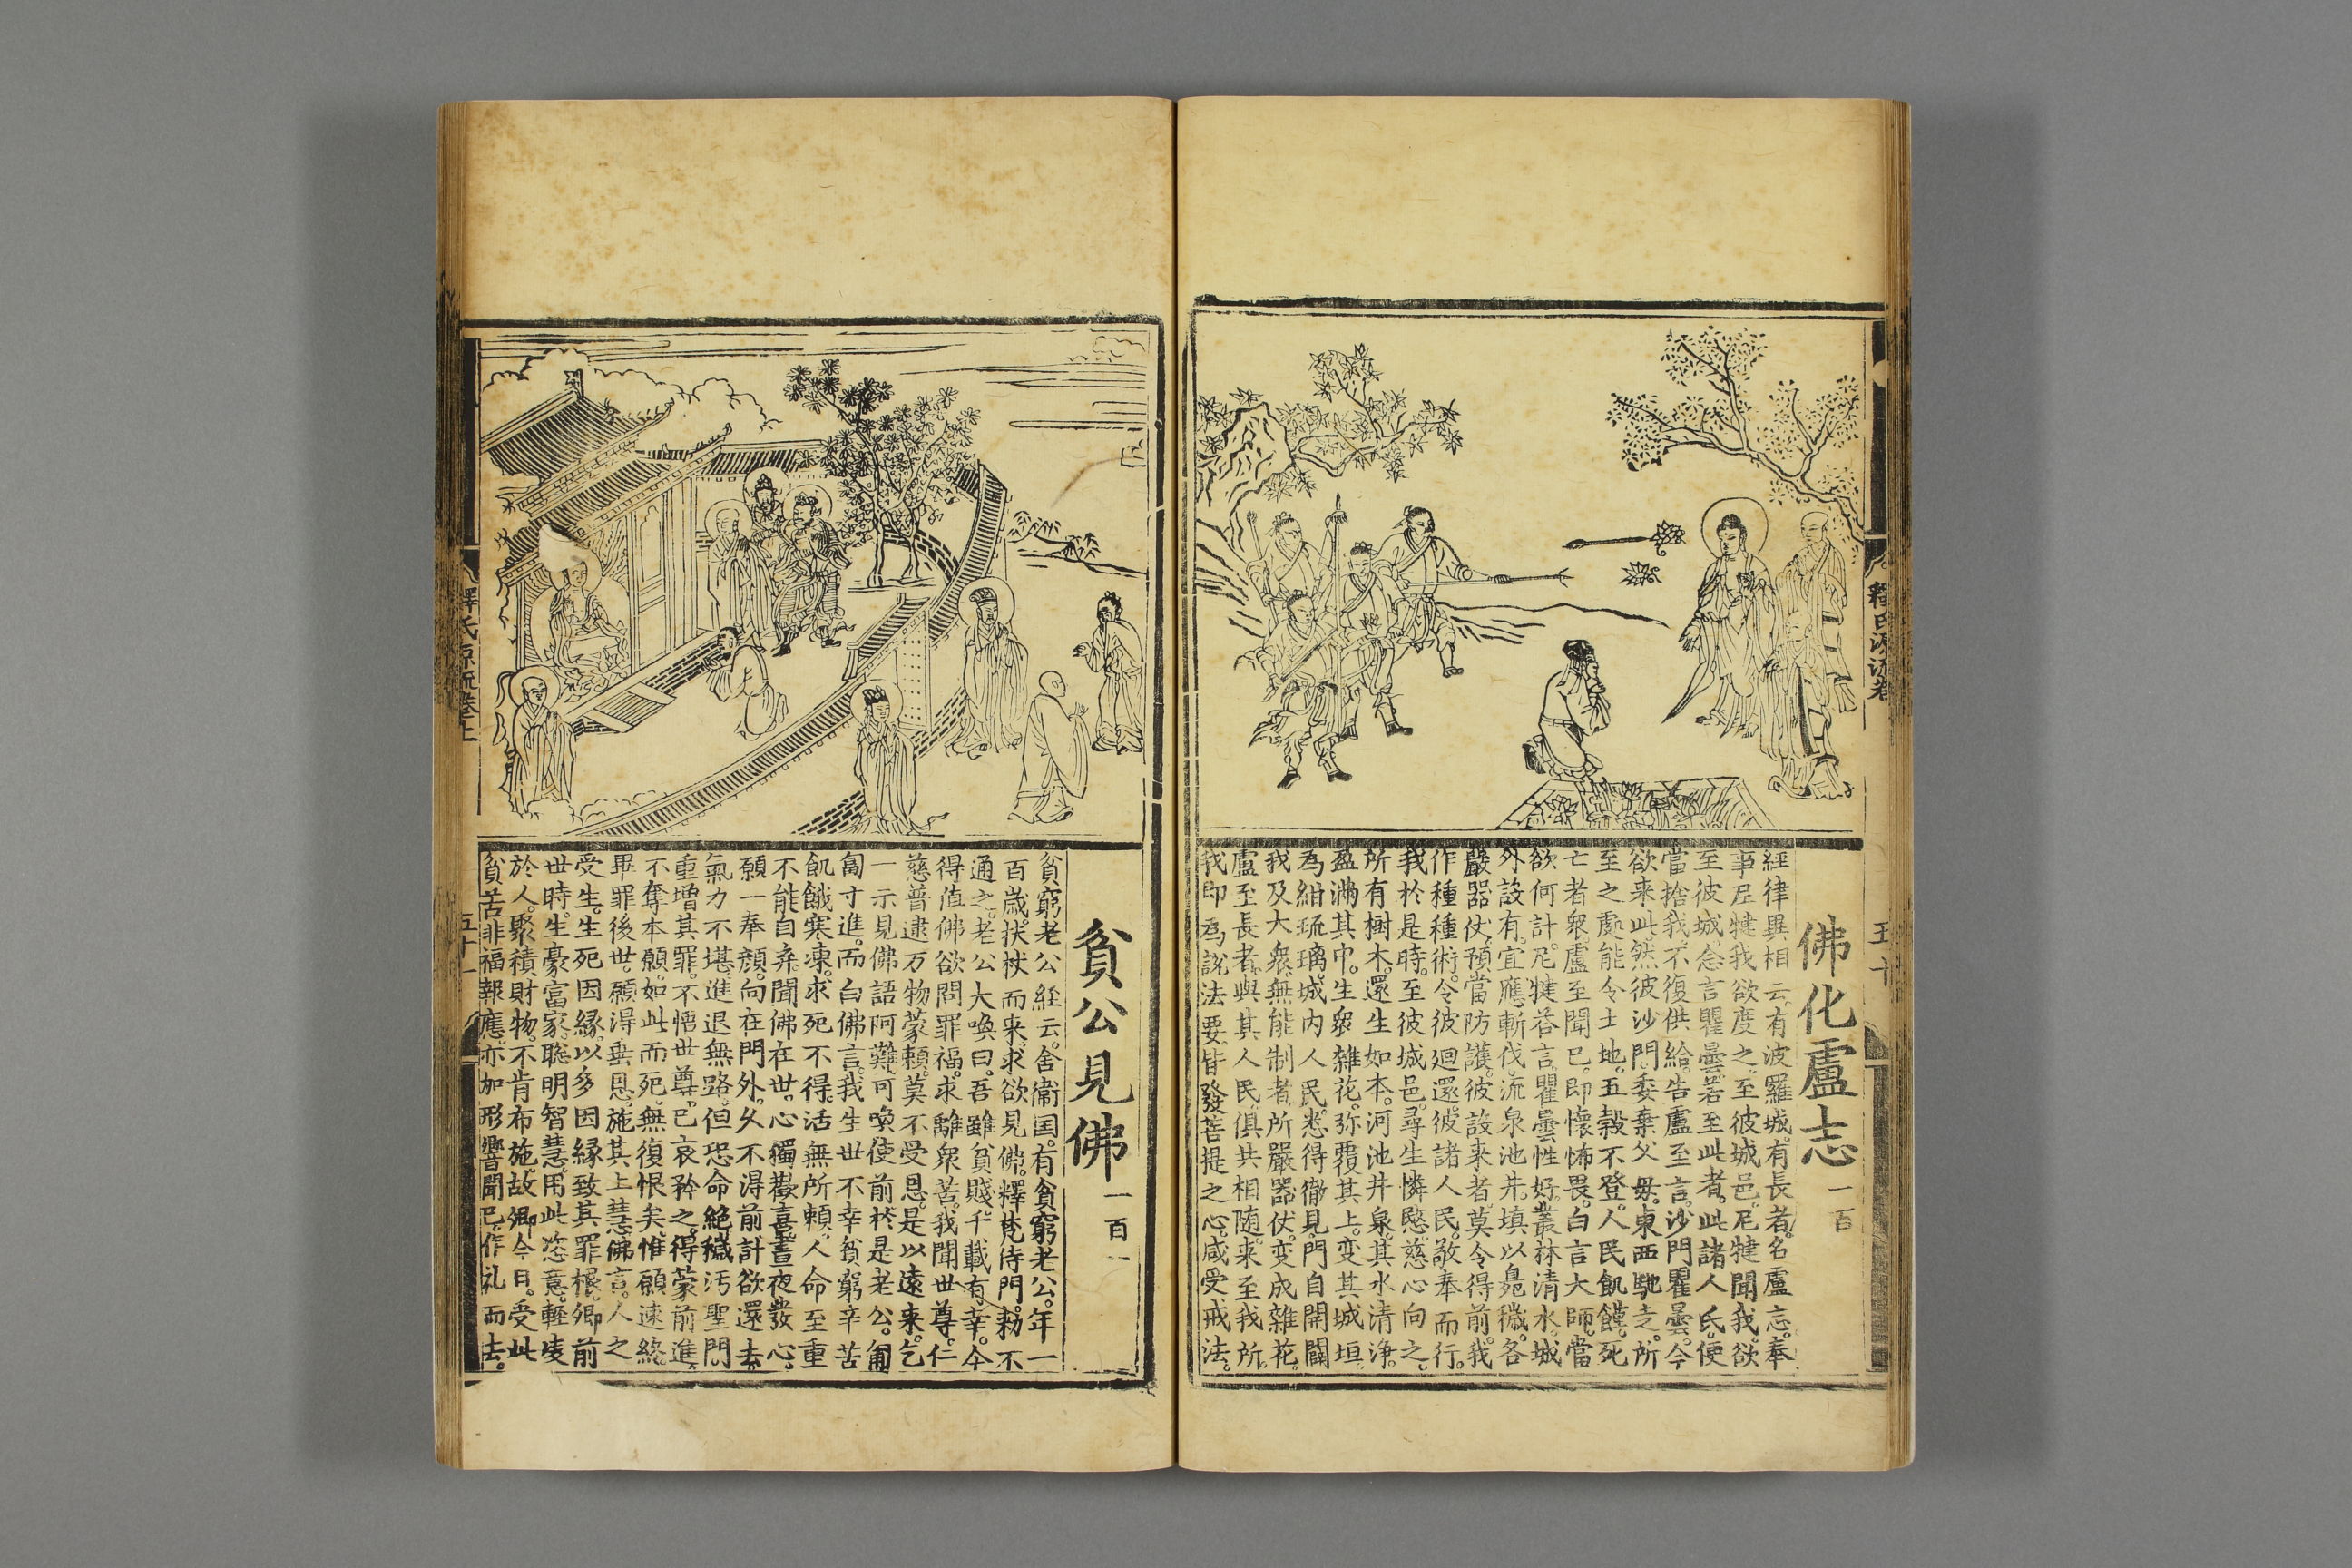 釋氏源流卷
五十
佛化盧志 一百
經律異相云。有波羅城。有長者名盧志。奉
事尼犍。我欲度之。至彼城邑。尼犍聞我欲
至彼城。忩言瞿曇若至此者。此諸人民便
當捨我。不復供給。告盧至言。沙門瞿曇。今
欲來此。然彼沙門。委棄父母。東西馳走。所
至之處。能令土地。五穀不登。人民飢饉。死
亡者衆。盧至聞已。即懷怖畏。白言大師。當
欲何計。尼犍答言。瞿曇性好叢林清水。城
外設有。宜應斬伐。流泉池井。填以臰穢。各
嚴器仗。預當防護。彼設来者。莫令得前。我
作種種術。令彼廻還。彼諸人民。敬奉而行。
我於是時。至彼城邑。尋生憐愍。慈心向之。
所有樹木。還生如本。河池井泉。其水清淨。
盈滿其中。生衆雜花。弥覆其上。变其城垣。
為紺琉璃。城内人民。悉得徹見。門自開闢
我及大衆。無能制者。所嚴器仗。变成雜花。
盧至長者。與其人民。俱共相随。来至我所。
我即為說法要。皆發菩提之心。咸受戒法。
貧公見佛 一百一
貧窮老公経云。舍衛国。有貧窮老公。年一
百歲。扶杖而来。求欲見佛。釋梵侍門。勑不
通之。老公大喚曰。吾雖貧賤。千載有幸。今
得值佛。欲問罪福。求離衆苦。我聞世尊。仁
慈普逮。万物蒙賴。莫不受恩。是以遠来。乞
一示見。佛語阿難。可喚使前。於是老公。匍
匐寸進。而白佛言。我生世不幸。貧窮辛苦
飢餓寒凍。求死不得。活無所賴。人命至重
不能自弃。聞佛在世。心獨歡喜。晝夜發心。
願一奉顏。向在門外。久不得前。計欲還去
氣力不堪。進退無路。但恐命絕。穢污聖門。
重增其罪。不悟世尊。已哀矜之。得蒙前進。
不奪本願。如此而死。無復恨矣。惟願速終。
畢罪後世。願得垂恩。施其上慧。佛言。人之
受生。生死因緣。以多因緣。致其罪根。卿前
世時。生豪富家。聡明智慧。用此恣意。輕凌
於人。聚積財物。不肯布施。故卿今日。受此
貧苦。非福報應。亦如形響。聞已。作礼而去。
釋氏源流卷上
五十一